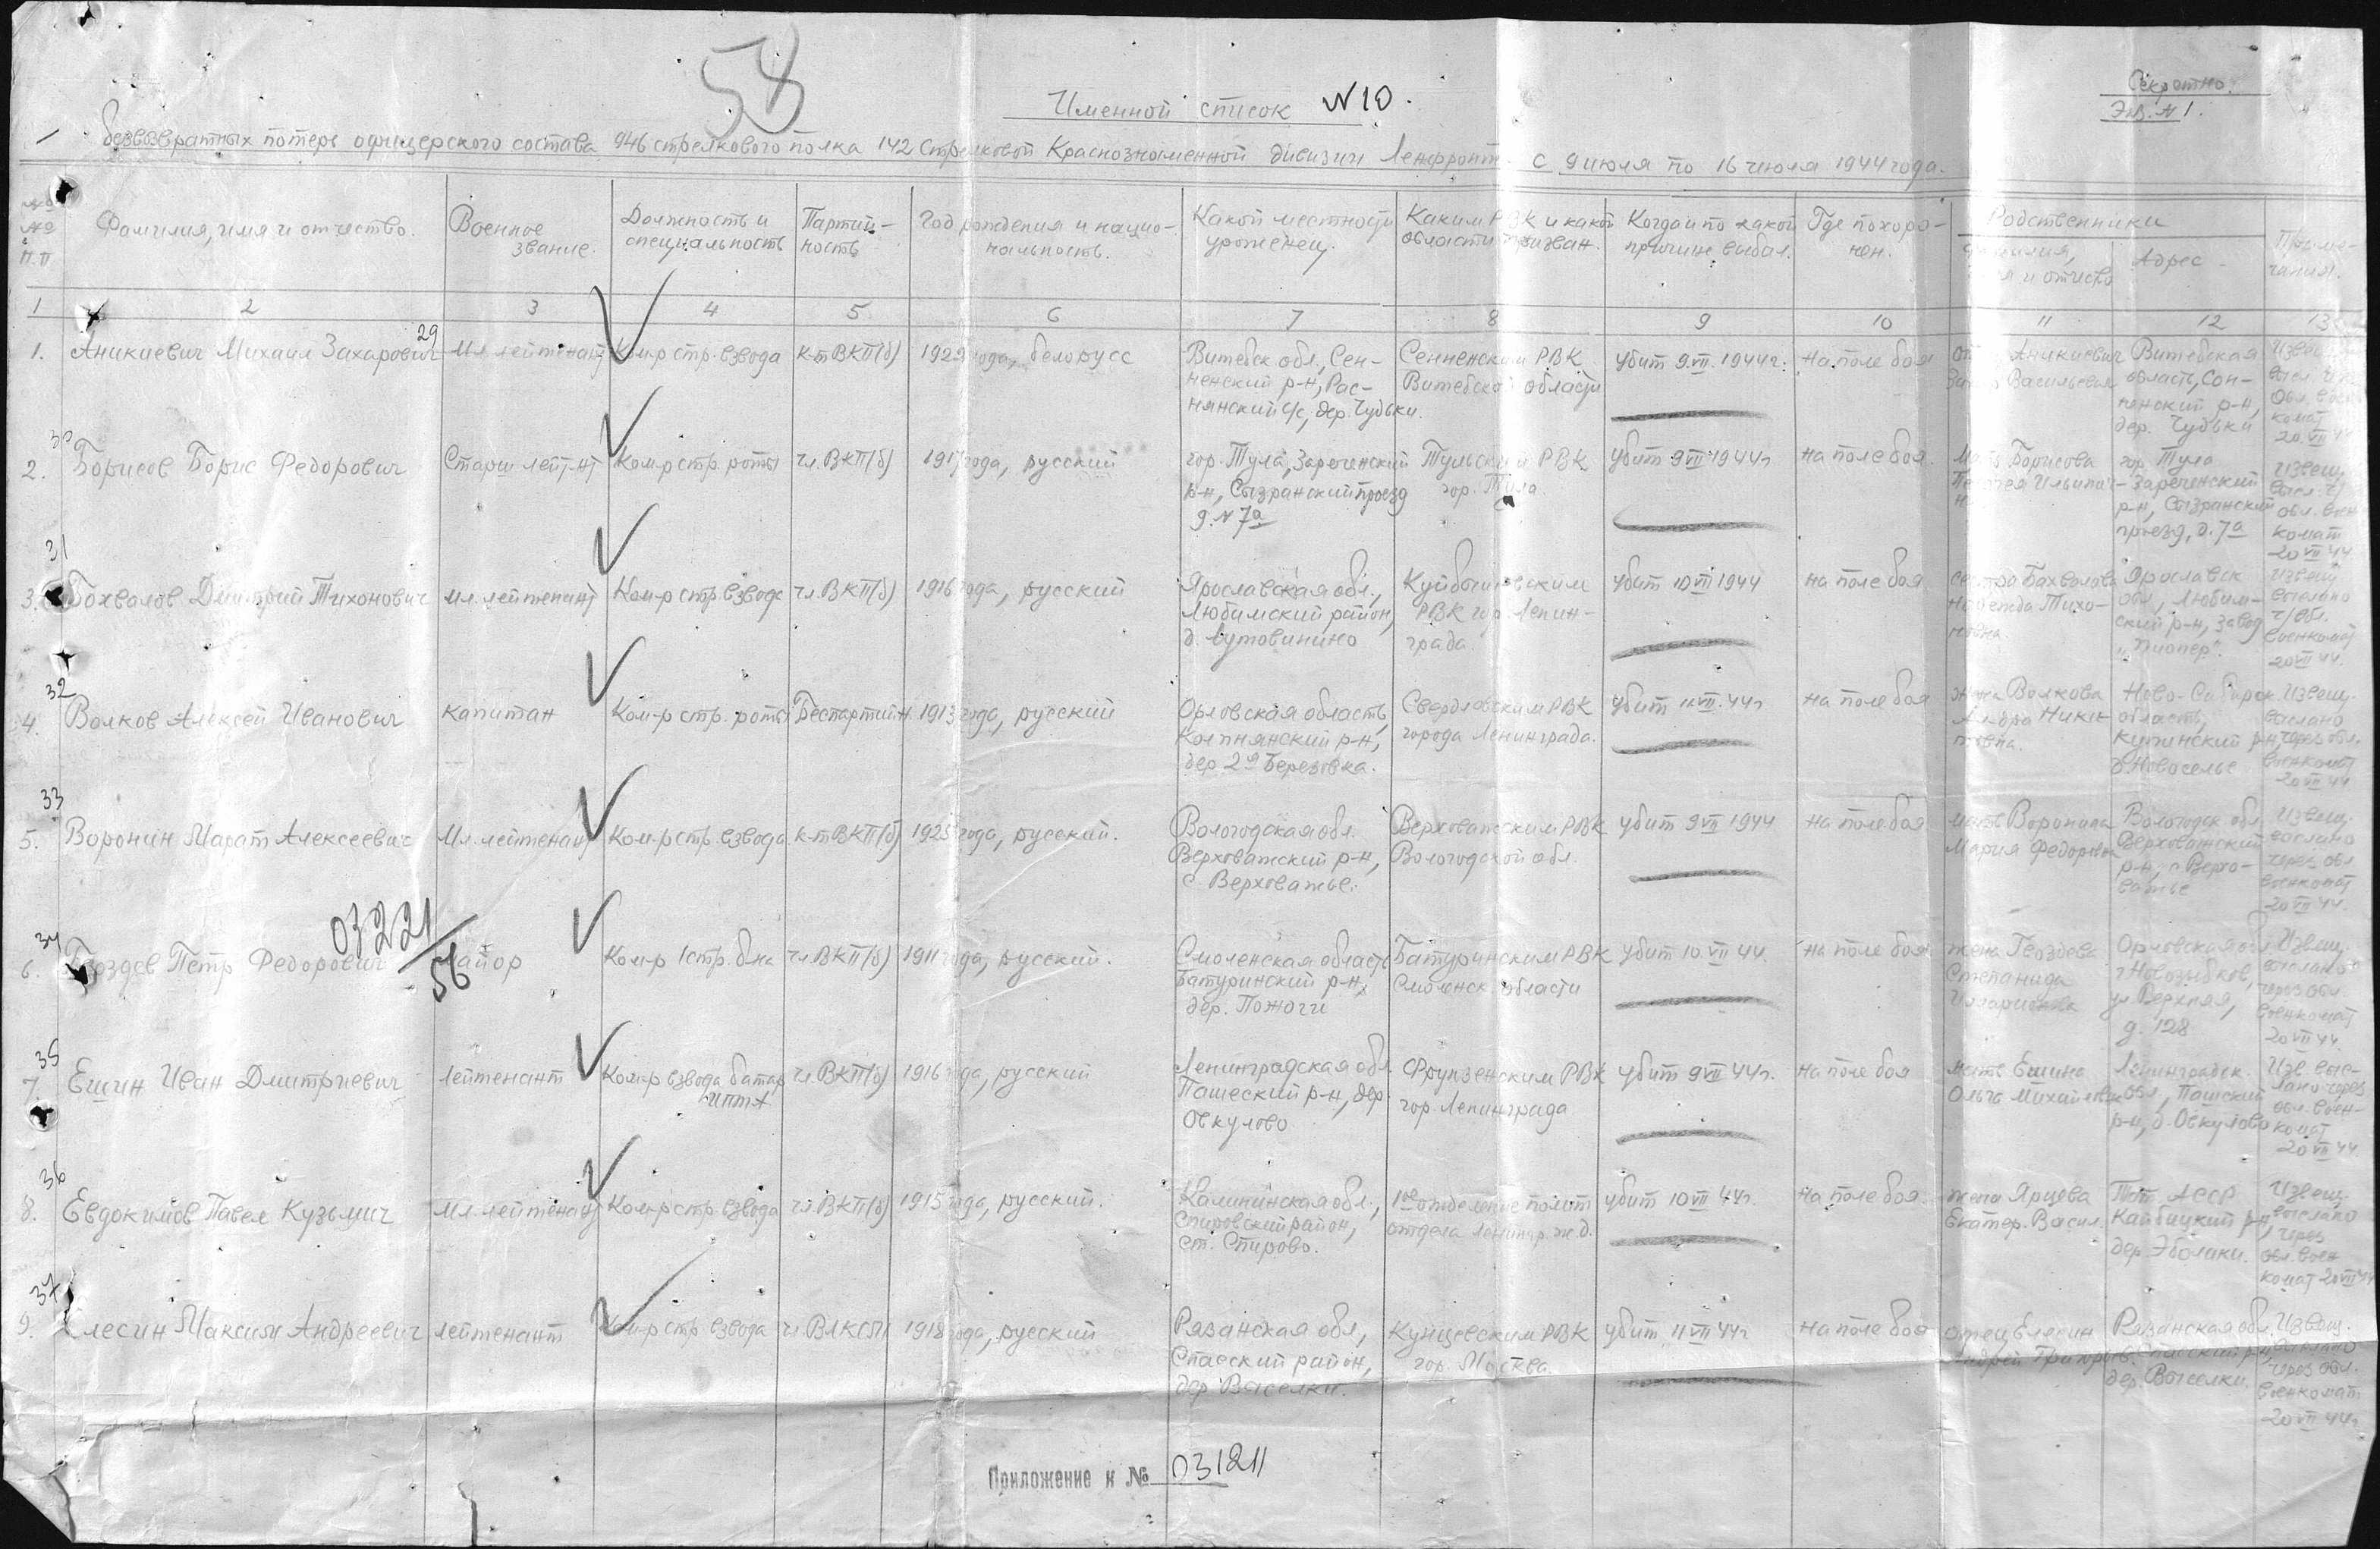 58
Секретно.
Экз. № 1.
Именной список № 10.
безвозвратных потерь офицерского состава 946 стрелкового полка 142 Стрелковой Краснознаменной дивизии Ленфронта с 9 июля по 16 июля 1944 года.
№ № п.п Фамилия, имя и отчество. Военное звание. Должность и специальность Партийность Год рождения и национальность. Какой местности уроженец. Каким РВК и какой области призван. Когда и по какой причине выбыл. Где похоронен. Родственники Адрес Примечания.
1 2 3 4 5 6 7 8 9 10 11 12 13
29
1. Аникиевич Михаил Захарович Мл. лейтенант Ком-р стр. взвода к-т ВКП(б) года, белорусс Витебск обл., Сен- Сенненским РВК убит 9.VII.1944г. на поле боя Аникиевич Витебская
ненский р-н, Рас- Витебской области Васильевич область, Сен-
нянский с/с, дер. Чудьки. ненский р-н,
дер. Чудьки
20.VII.44
30
2. Борисов Борис Федорович Старш лейт-нт Ком-р стр. роты чл. ВКП(б) 1917 года, русский гор. Тула, Зареченский Тульским РВК убит 9 VII 1944г на поле боя. Мать Борисова гор. Тула Извещ.
р-н, Сызранский проезд гор. Тула Зареченский
д. № 7а р-н, Сызранский обл. воен
проезд, д. 7а комат
20 VII 44
31
3. Бохвалов Дмитрий Тихонович мл. лейтенант Ком-р стр. взвода чл. ВКП(б) 1916 года, русский Ярославская обл., Куйбышевским убит 10 VII 1944 на поле боя сестра Бахвалова Ярославск Извещ
Любимский район, РВК гор. Ленин- Надежда Тихо- обл., Любим- выслано
д. Лутовинино града. новна ский р-н, завод ч/обл.
„Пионер". военкомат
20 VII 44.
32
4. Волков Алексей Иванович капитан Ком-р стр. роты Беспартийн. 1913 года, русский Орловская область, Свердловским РВК убит 11.VII.44г на поле боя жена Волкова Ново-Сибирск. Извещ.
Колпнянский р-н, города Ленинграда. область, выслано
дер. 2я Березовка. Купинский р-н, через обл.
д. Новоселье военкомат
20 VII 44
33
5. Воронин Марат Алексеевич Мл. лейтенант Ком-р стр. взвода к-т ВКП(б) 1925 года, русский. Вологодская обл. Верховажским РВК убит 9 VII 1944 на поле боя мать Воронина Вологодск обл. Извещ.
Верховажский р-н, Вологодской обл. Мария Федоровна Верховажский выслано
с. Верховажье. р-н, с. Верхо- через обл
важье военкомат
20 VII 44.
03221
56
34
6. Гвоздев Петр Федорович майор Ком-р 1 стр. б-на чл. ВКП(б) 1911 года, русский. Смоленская область Батуринским РВК убит 10.VII 44. на поле боя жена Гвоздева Орловская обл Извещ.
Батуринский р-н, Смоленск. области Степанида г. Новозыбков, выслано
дер. Пожоги Илларионовна ул. Верхняя, через обл.
д. 128 военкомат
20 VII 44.
35
7. Ешин Иван Дмитриевич Лейтенант Ком-р взвода батар чл. ВКП(б) 1916 года, русский Ленинградская обл. Фрунзенским РВК убит 9 VII 44г. на поле боя мать Ешина Ленинградск. Изв. выс-
Пашеский р-н, дер. гор. Ленинграда Ольга Михайловна обл., Пашский лано через
Овкулово р-н, д. Овкулово обл. воен-
комат
20 VII 44
36
8. Евдокимов Павел Кузьмич Мл. лейтенант Ком-р стр. взвода чл. ВКП(б) 1915 года, русский. Калининская обл., 1ое отделение полит убит 10 VII 44г. на поле боя. жена Ярцева Тат. АССР Извещ.
Спировский район, отдела Ленингр. ж.д. Екатер. Васил. Кайбицкий р-н, выслано
ст. Спирово. дер. Эболаки. через
обл. воен
комат 20 VII 44
37
9. Елесин Максим Андреевич лейтенант Ком-р стр взвода чл. ВЛКСМ 1918 года, русский Рязанская обл., Кунцевским РВК убит 11 VII 44г на поле боя отец Елесин Рязанская обл. Извещ.
Спасский район, гор. Москва Андрей Григорьев. Спасский р-н, выслано
дер. Выселки. дер. Выселки. через обл.
военкомат
20 VII 44г
Приложение к № 031211